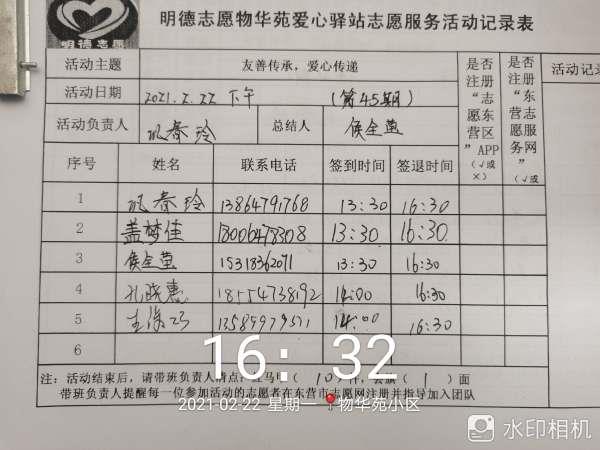 明德志愿物华苑爱心驿站志愿服务活动记录表
明德志愿
活动主题 友善传承,爱心传递
是否注册“志愿东营区”APP(√或×)
是否注册“东营志愿服务网”(√或
活动记录
活动日期 2021.2.22 下午 (第45期)
活动负责人 春玲 总结人 侯全莹
序号 姓名 联系电话 签到时间 签退时间
1 春玲 13864791768 13:30 16:30
2 盖梦佳 18006478308 13:30 16:30
3 侯全莹 15318362071 13:30 16:30
4 孔晓惠 18554738192 14:00 16:30
5 14:00 16:30
6
16:32
注:活动结束后,请带班负责人清点 马甲(10)件,会旗(1)面
带班负责人提醒每一位参加活动的志愿者在东营市志愿网注册并指导加入团队
2021-02-22 星期一 物华苑小区
水印相机